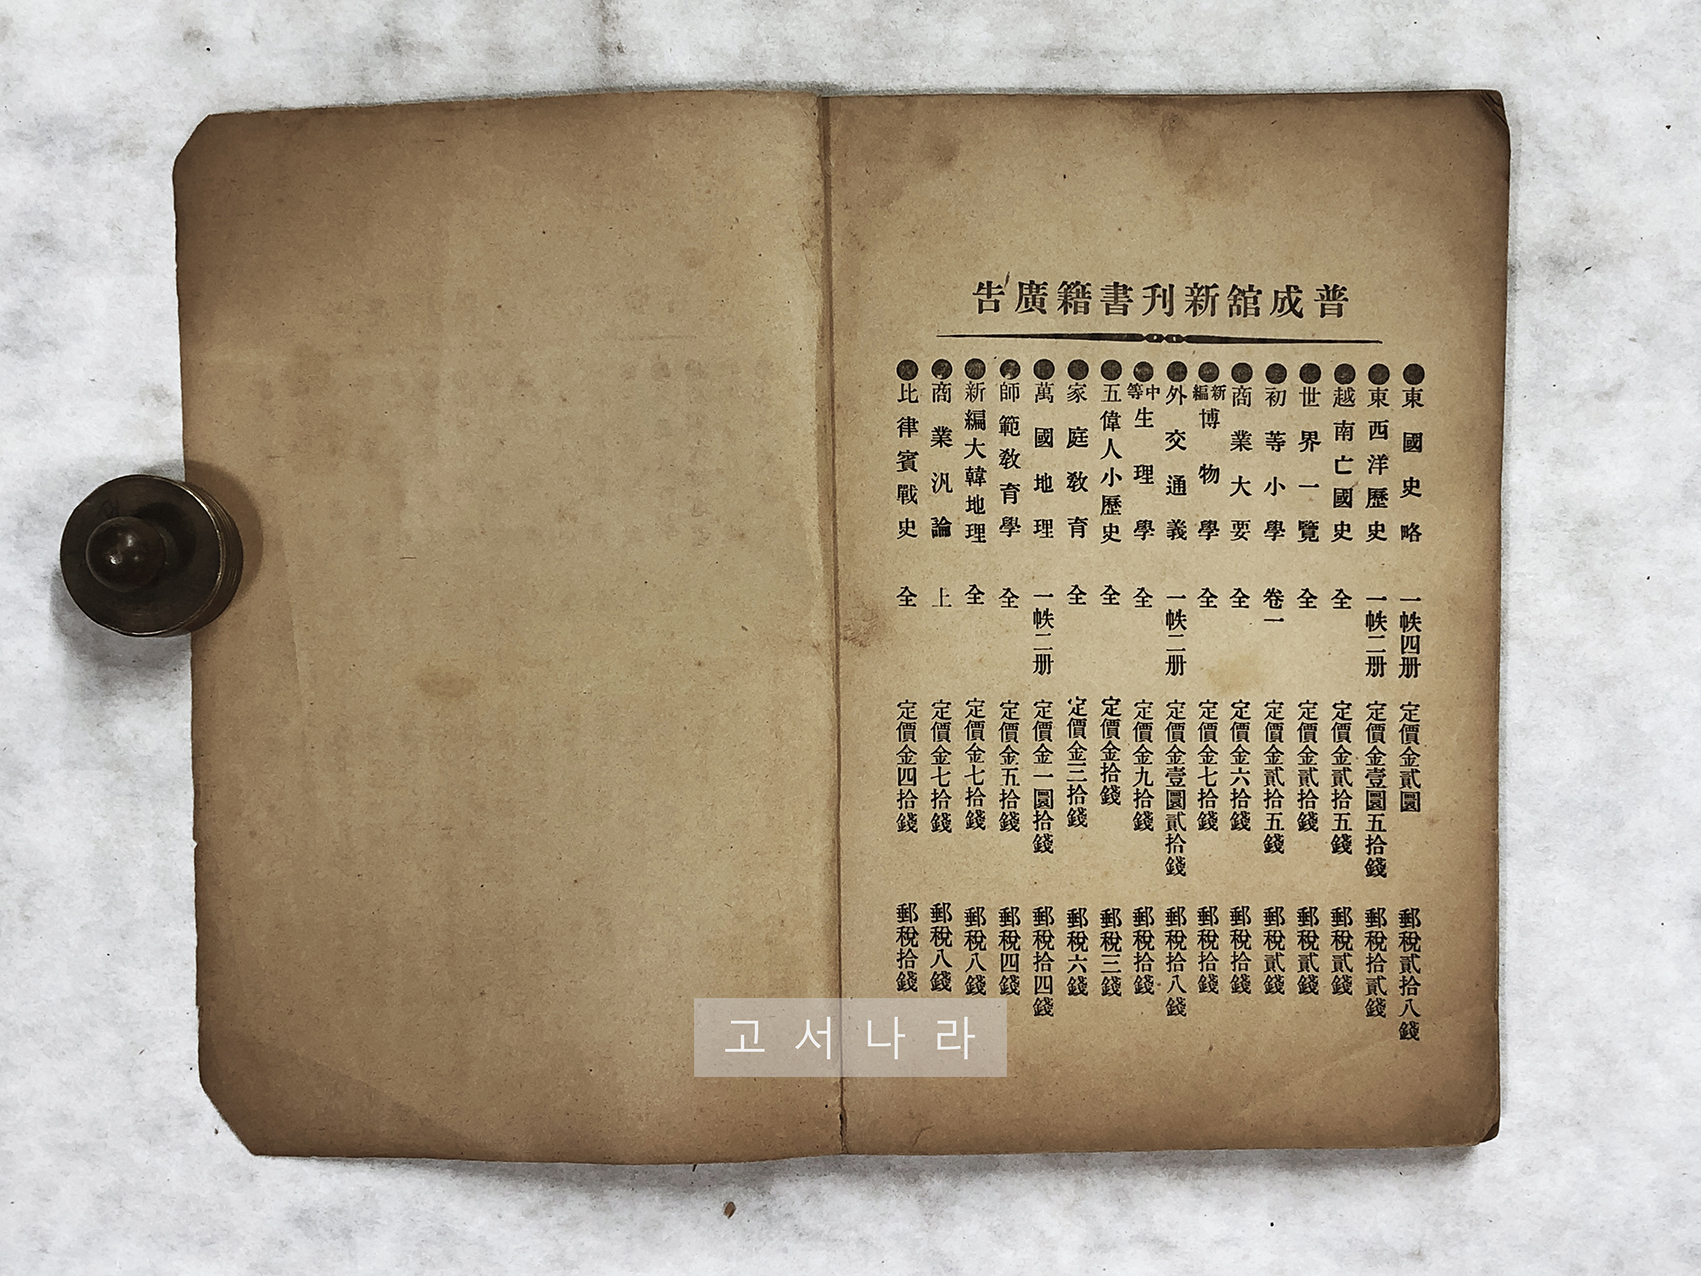 普成舘新刊書籍廣告
東國史略 一帙四册 定價金貳圜 郵稅貳拾八錢
東西洋歷史 一帙二册 定價金壹圜五拾錢 郵稅拾貳錢
越南亡國史 全 定價金貳拾五錢 郵稅貳錢
世界一覽 全 定價金貳拾錢 郵稅貳錢
初等小學 卷一 定價金貳拾五錢 郵稅貳錢
商業大要 全 定價金六拾錢 郵稅拾錢
新編博物學 全 定價金七拾錢 郵稅拾錢
外交通義 一帙二册 定價金壹圜貳拾錢 郵稅拾八錢
中等生理學 全 定價金九拾錢 郵稅拾錢
五偉人小歷史 全 定價金拾錢 郵稅三錢
家庭敎育 全 定價金三拾錢 郵稅六錢
萬國地理 一帙二册 定價金一圜拾錢 郵稅拾四錢
師範敎育學 全 定價金五拾錢 郵稅四錢
新編大韓地理 全 定價金七拾錢 郵稅八錢
商業汎論 上 定價金七拾錢 郵稅八錢
比律賓戰史 全 定價金四拾錢 郵稅拾錢
고서나라